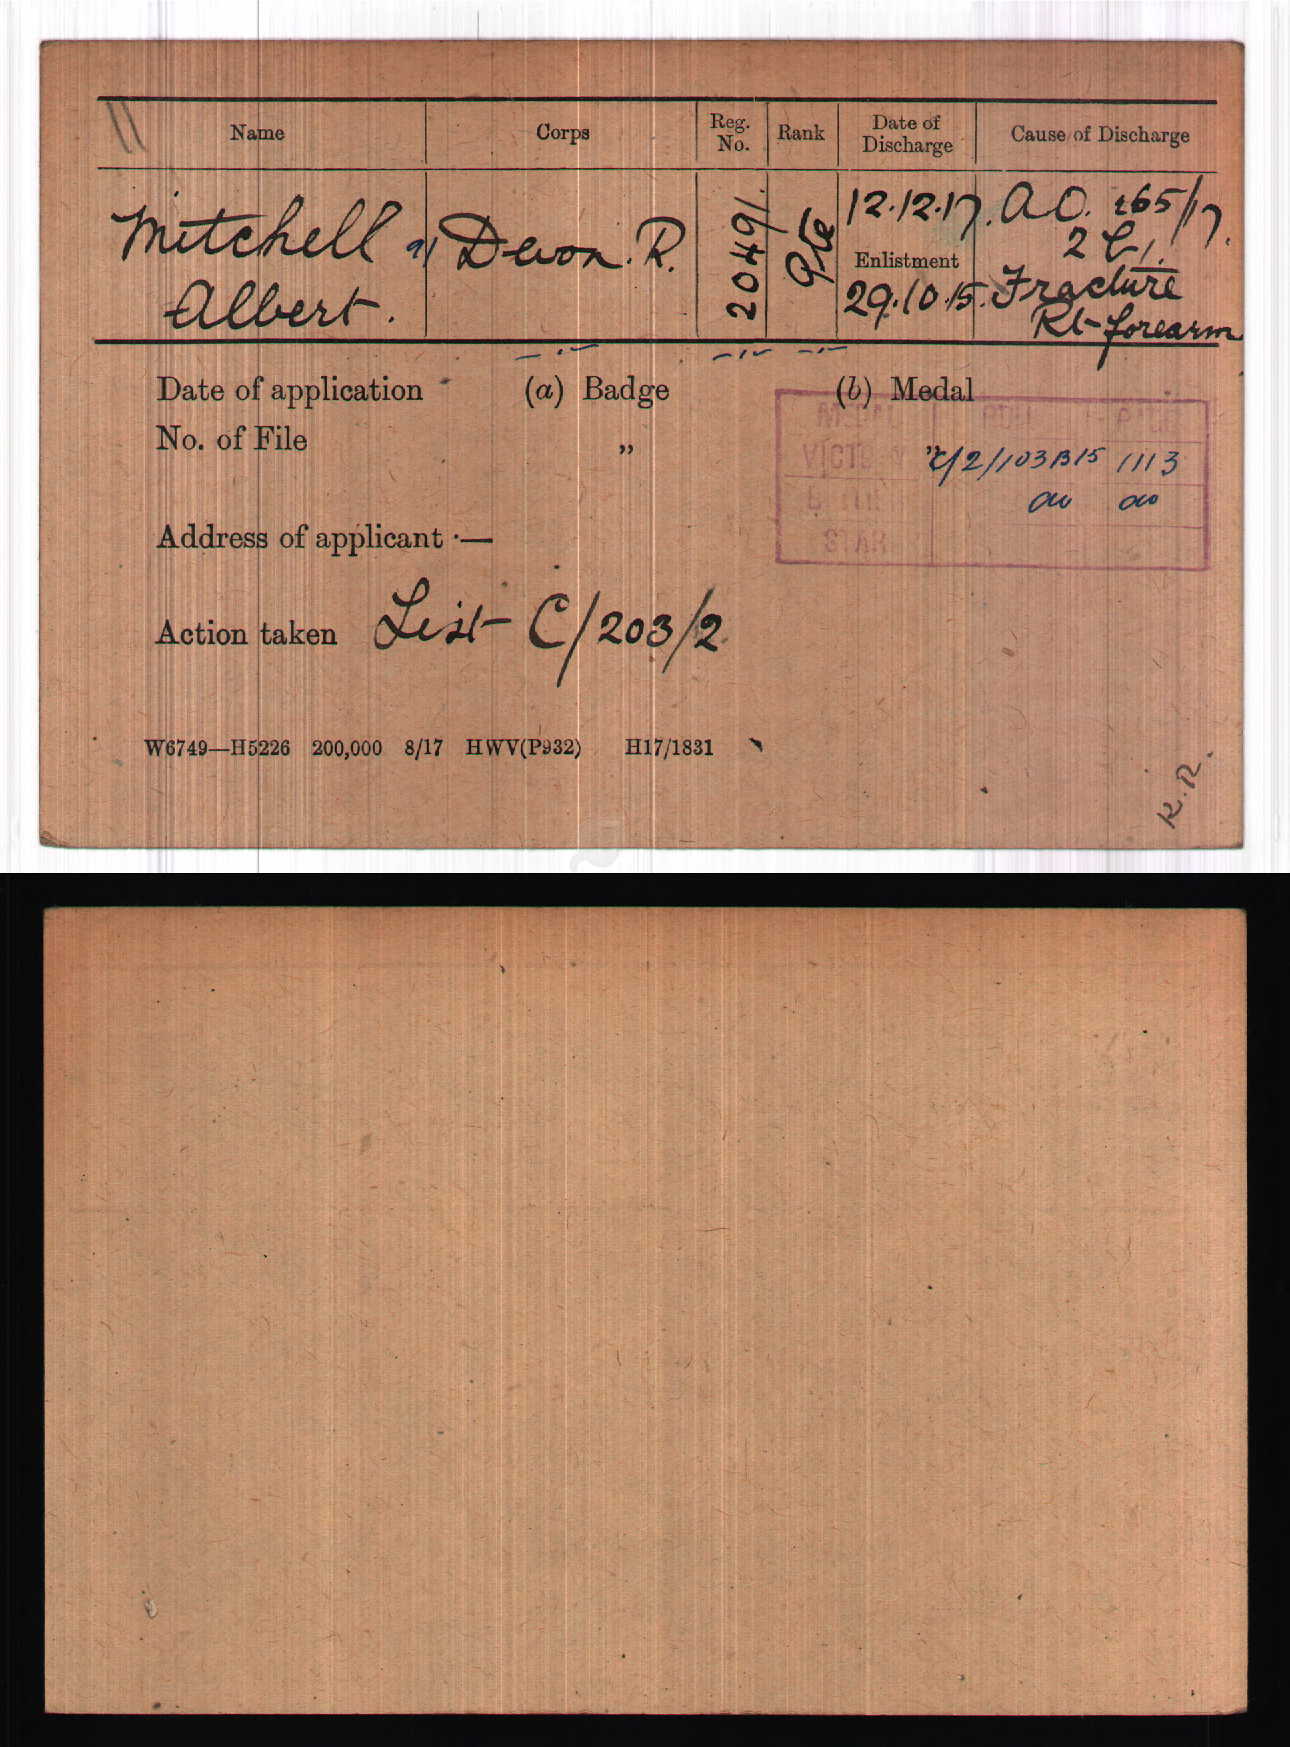 Name Corps Reg. No. Rank Date of Discharge Cause of Discharge
Mitchell Devon. R. 20491. Pte 12.12.17. A.O. 265/17.
Albert. Enlistment 2
29.10.15. Fracture
Rt forearm
Date of application (a) Badge (b) Medal
No. of File „ „ C/2/103B15 1113
do do
VICTORY
STAR
Address of applicant :—
Action taken List C/203/2
W6749—H5226 200,000 8/17 HWV(P932) H17/1831
K.R.